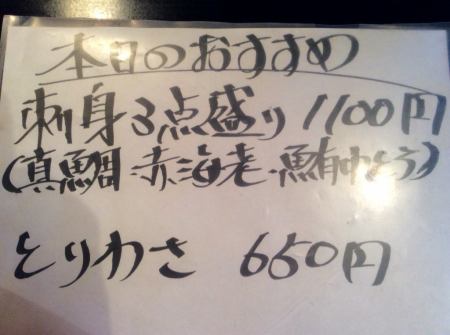 本日のおすすめ
刺身3点盛り 1100円
(真鯛・赤海老・鮪中とろ)
とりわさ 650円